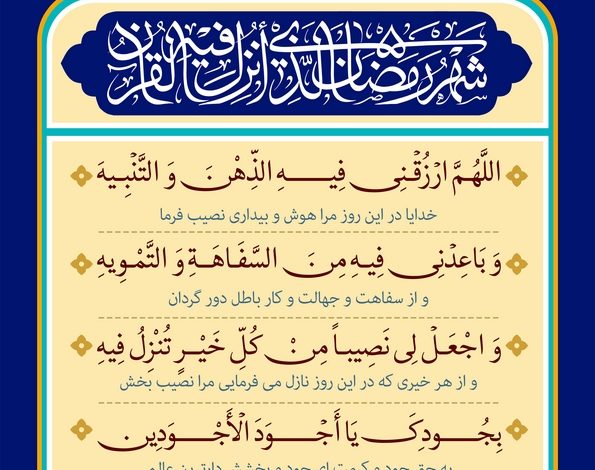 شَهْرُ رَمَضَانَ الَّذِي أُنْزِلَ فِيهِ الْقُرْآنُ
اللَّهُمَّ ارْزُقْنِي فِيهِ الذِّهْنَ وَ التَّنْبِيهَ
خدایا در این روز مرا هوش و بیداری نصیب فرما
وَ بَاعِدْنِي فِيهِ مِنَ السَّفَاهَةِ وَ التَّمْوِيهِ
و از سفاهت و جهالت و کار باطل دور گردان
وَ اجْعَلْ لِي نَصِيباً مِنْ كُلِّ خَيْرٍ تُنْزِلُ فِيهِ
و از هر خیری که در این روز نازل می فرمایی مرا نصیب بخش
بِجُودِكَ يَا أَجْوَدَ الْأَجْوَدِينَ